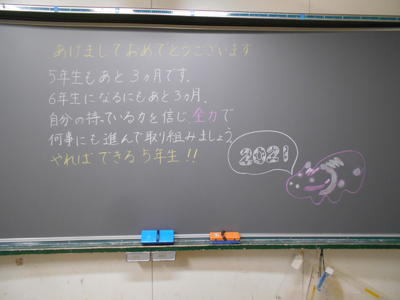 あけましておめでとうございます
5年生もあと3ヵ月です。
6年生になるにもあと3ヵ月。
自分の持っている力を信じ、全力で
何事にも進んで取り組みましょう。
やればできる5年生!!
2021